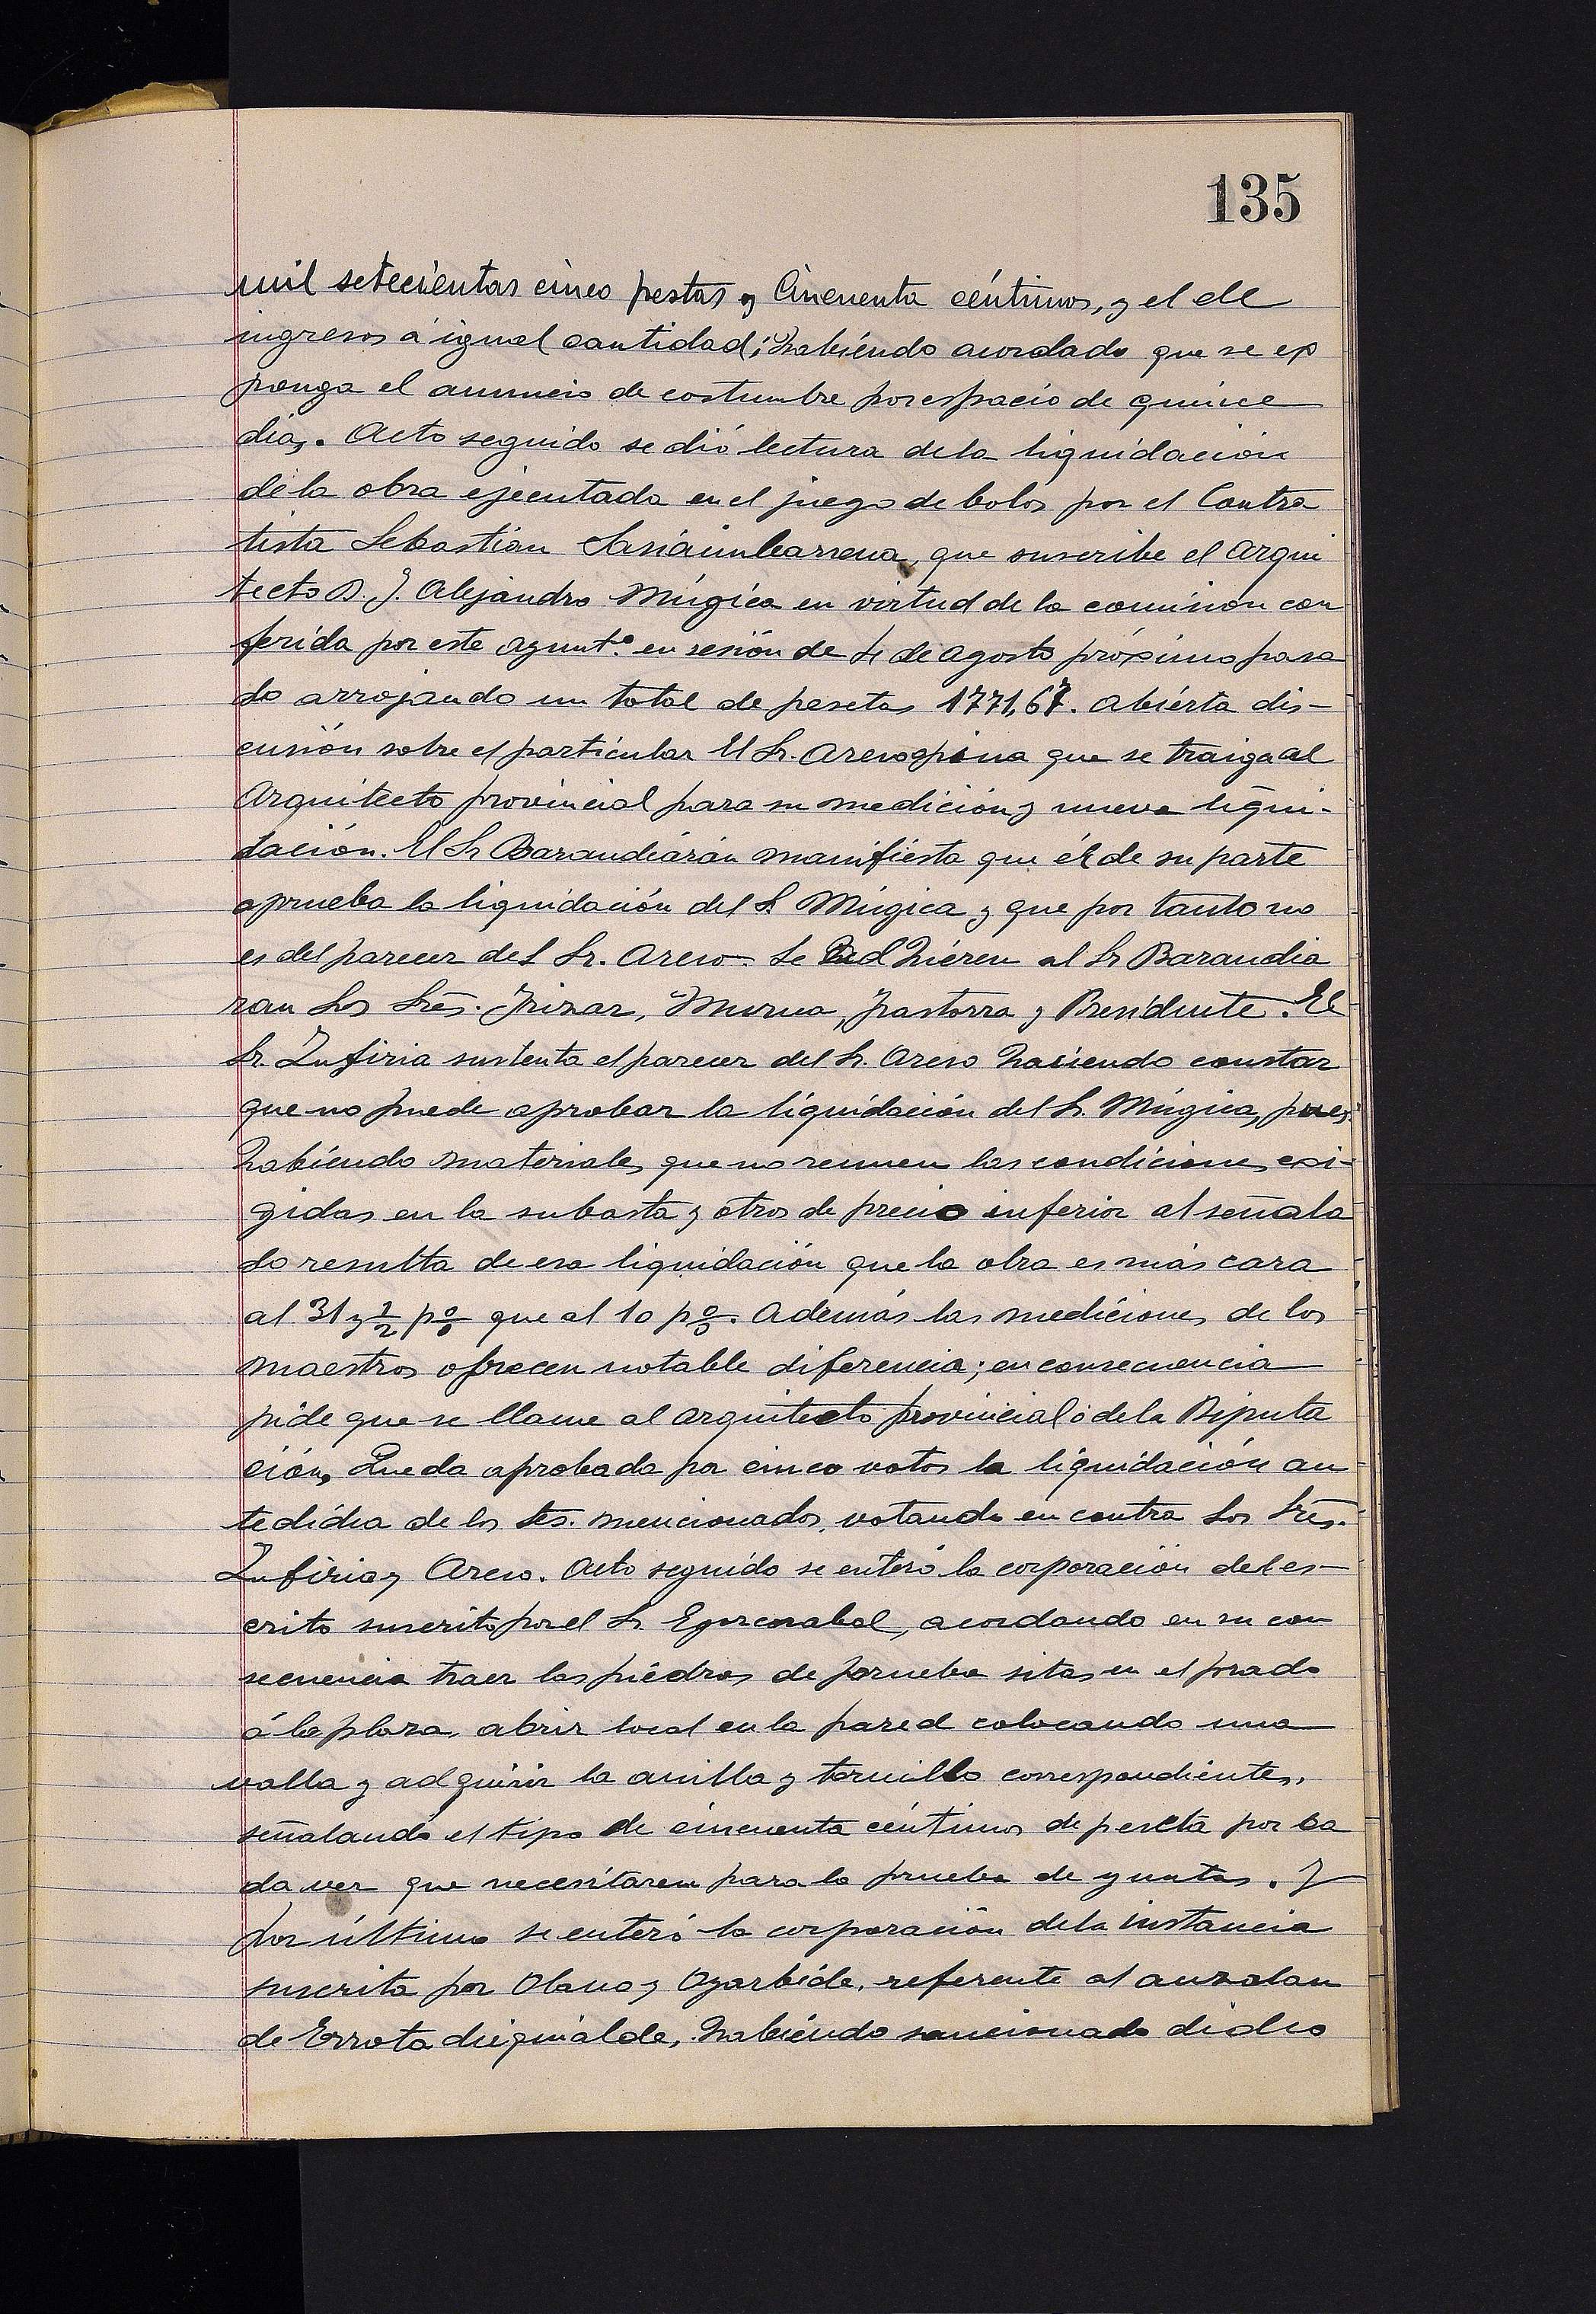 135
mil setecientas cinco pestas y Cincuenta céntimos, y el de
ingresos á igual cantidad; habiéndo acordado que se ex
ponga el anuncio de costumbre por espacio de quince
dias. Acto seguido se dió lectura de la liquidación
de la obra ejecutada en el juego de bolos por el Contra
tista Sebastián Sasiaimbarrena, que suscribe el Arqui
tecto D. J. Alejandro Múgica en virtud de la comision con
ferida por este Ayuntº. en sesión de 4 de Agosto próximo pasa
do arrojando un total de pesetas 1771,67. Abiérta dis-
cusión sobre el particular El Sr. Areso opina que se traiga al
Arquitecto provincial para su medición y nueva liqui-
dación. El Sr Barandiarán manifiésta que él de su parte
aprueba la liquidación del S. Múgica y que por tanto no
es del parecer del Sr. Areso. Se adhiéren al Sr Barandia
ran los Srēs. Irizar, Murua, Ipastorra y Presidente. El
Sr. Zufiria sustenta el parecer del Sr. Areso haciendo constar
que no puede aprobar la liquidación del Sr. Múgica, pues
habiéndo materiales que no reunen las condiciones exi-
gidas en la subasta y otros de precio inferior al señala
do resulta de esa liquidación que la obra es más cara
al 31 y 1/2 p% que al 10 p%. Además las mediciones de los
maestros ofrecen notable diferencia; en consecuencia
pide que se llame al arquitecto provincial ó de la Diputa
ción. Queda aprobada por cinco votos la liquidación an
tedicha de los Srs. mencionados, votando en contra los Srēs.
Zufiria y Areso. Acto seguido se enteró la corporación del es-
crito suscrito por el Sr Egorcozabal, acordando en su con
secuencia traer las piédras de prueba sitas en el prado
á la plaza, abrir local en la pared colocando una
valla y adquirir la anilla y tornillo correspondientes,
señalando el tipo de cincuenta céntimos de peseta por ca
da vez que necesitaren para la prueba de yuntas. Y
por último se enteró la corporación de la instancia
suscrita por Olano y Oyarbide, referente al auzolan
de Errota dieguialde, habiéndo sancionado dicho